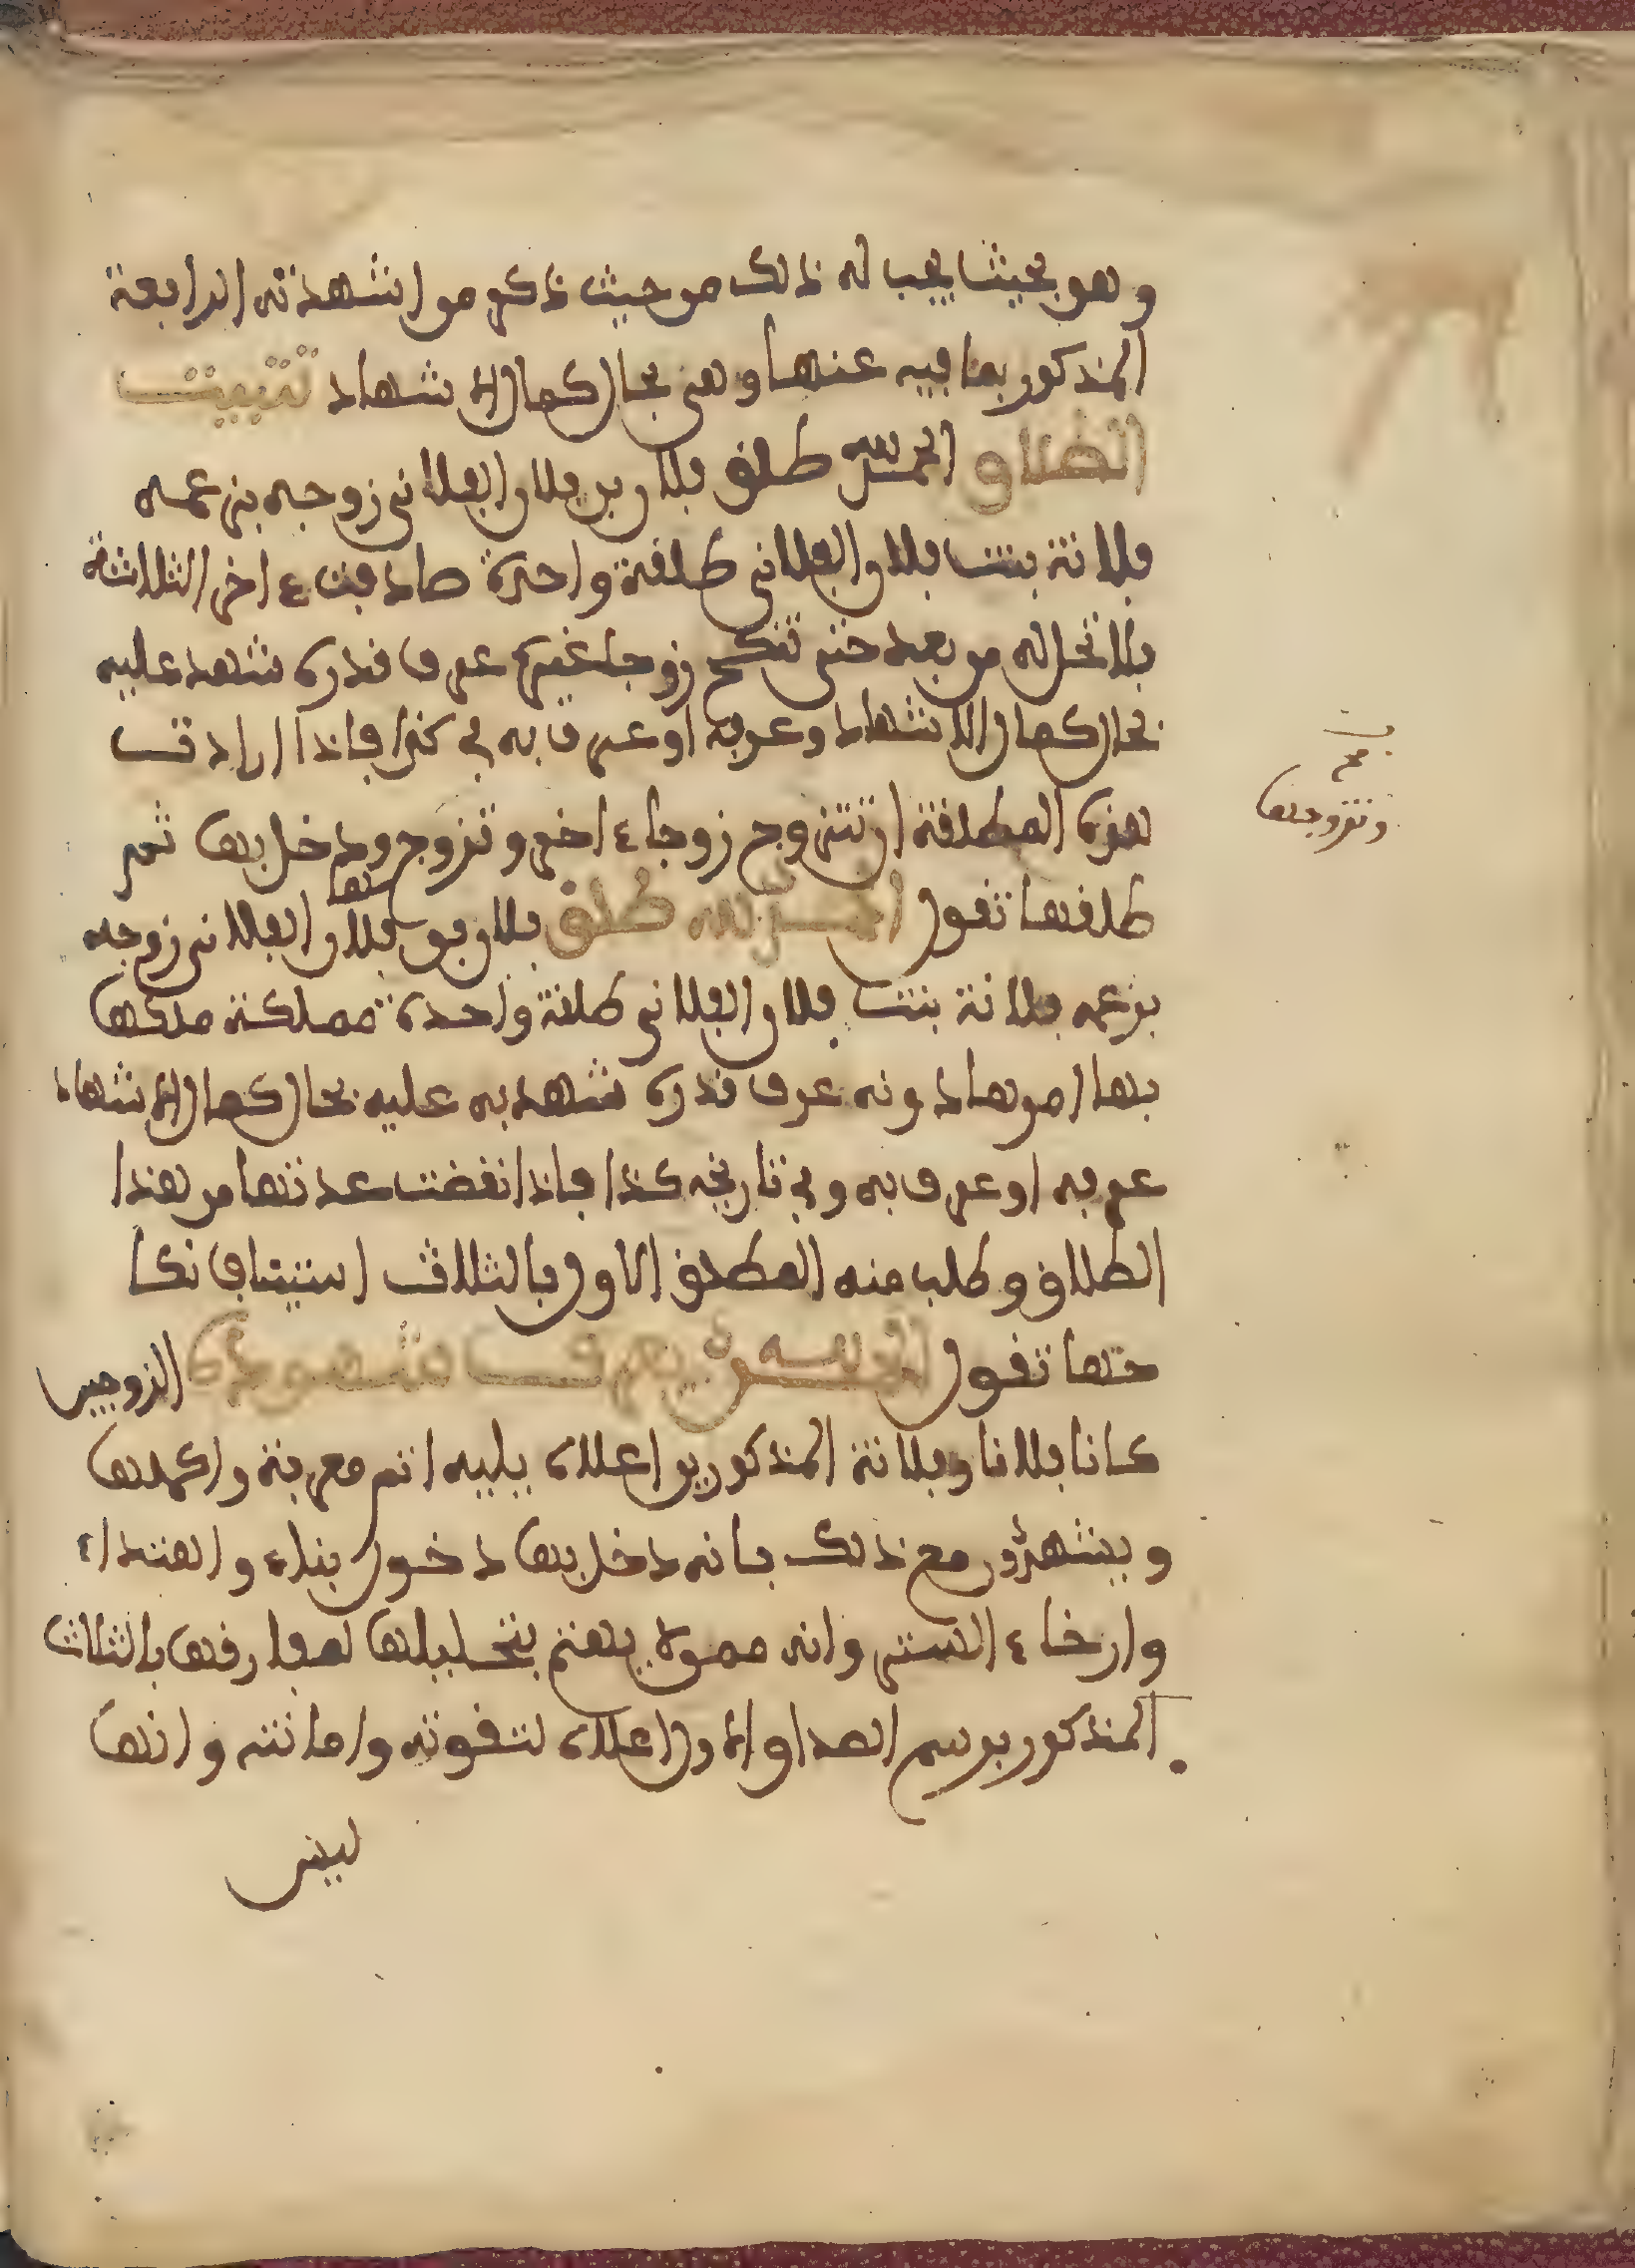 وهو بحيث يجب له ذلك من حيث ذكر من اشهدته الرابعة
المذكور بما فيه عنها وهي بحال كمال الاشهاد تثبيت
الطلاق الحمد لله طلق فلان بن فلان الفلاني زوجه بنت عمه
فلانة بنت فلان الفلاني طلقة واحدة صادفت ءاخر الثلاثة
فلا تحل له من بعد حتى تنكح زوجا غيره عرف قدره شهد عليه
بحال كمال الاشهاد وعرفه او عرف به في كذا فاذا ارادت
هذه المطلقة ان تتزوج زوجا ءاخر وتزوج ودخل بها ثم
طلقها تقول الحمد لله طلق فلان بن فلان الفلاني زوجه
بنت عمه فلانة بنت فلان الفلاني طلقة واحدة مملكة ملكها
بها امرها دونه عرف قدره شهد به عليه بحال كمال الاشهاد
عرفه او عرف به وفي تاريخه كذا فاذا انقضت عدتها من هذا
الطلاق وطلب منه المطلق الاول بالثلاث استيناف نكا
حها تقول الحمد لله يعرف شهوده الزوجين
كانا فلانا وفلانة المذكورين اعلاه يليه اتم معرفة واكملها
ويشهدون مع ذلك بانه دخل بها دخول بناء واهتداء
وارخاء الستر وانه ممن لا يهتم بتحليلها لمفارقها بالثلاث
المذكور برسم الصداق الاول اعلاه لثقوته وامانته وانها
ليس
وتزوجها